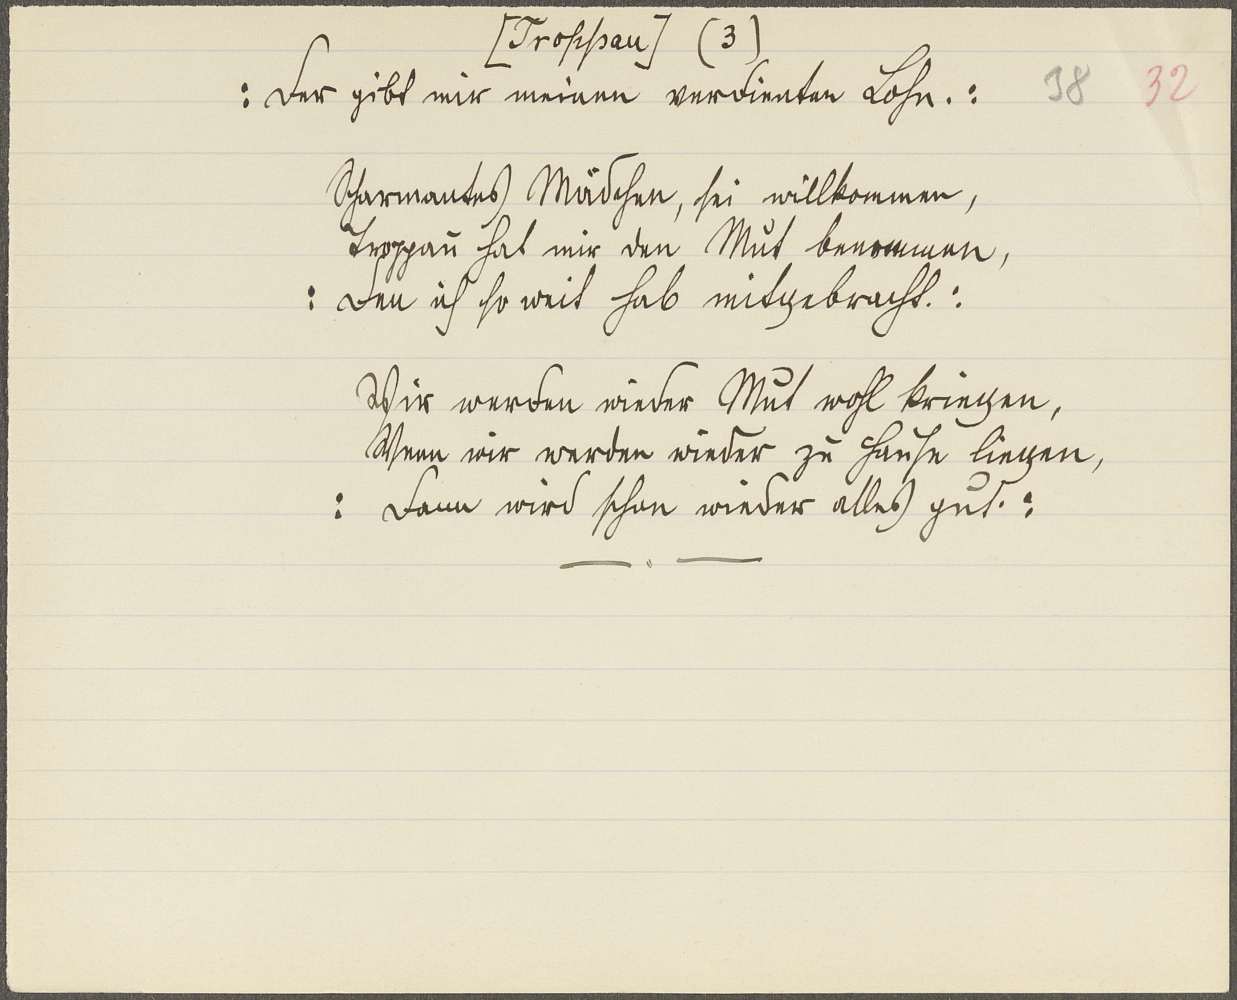 [Troppau] (3)
: Der gibt mir meinen verdienten Lohn. : 38 32
Scharmantes Mädchen, sei willkommen,
Troppau hat mir den Mut benommen,
: Den ich so weit hab mitgebracht. :
Wir werden wieder Mut wohl kriegen,
Wenn wir werden wieder zu Hause liegen,
: Dann wird schon wieder alles gut. :